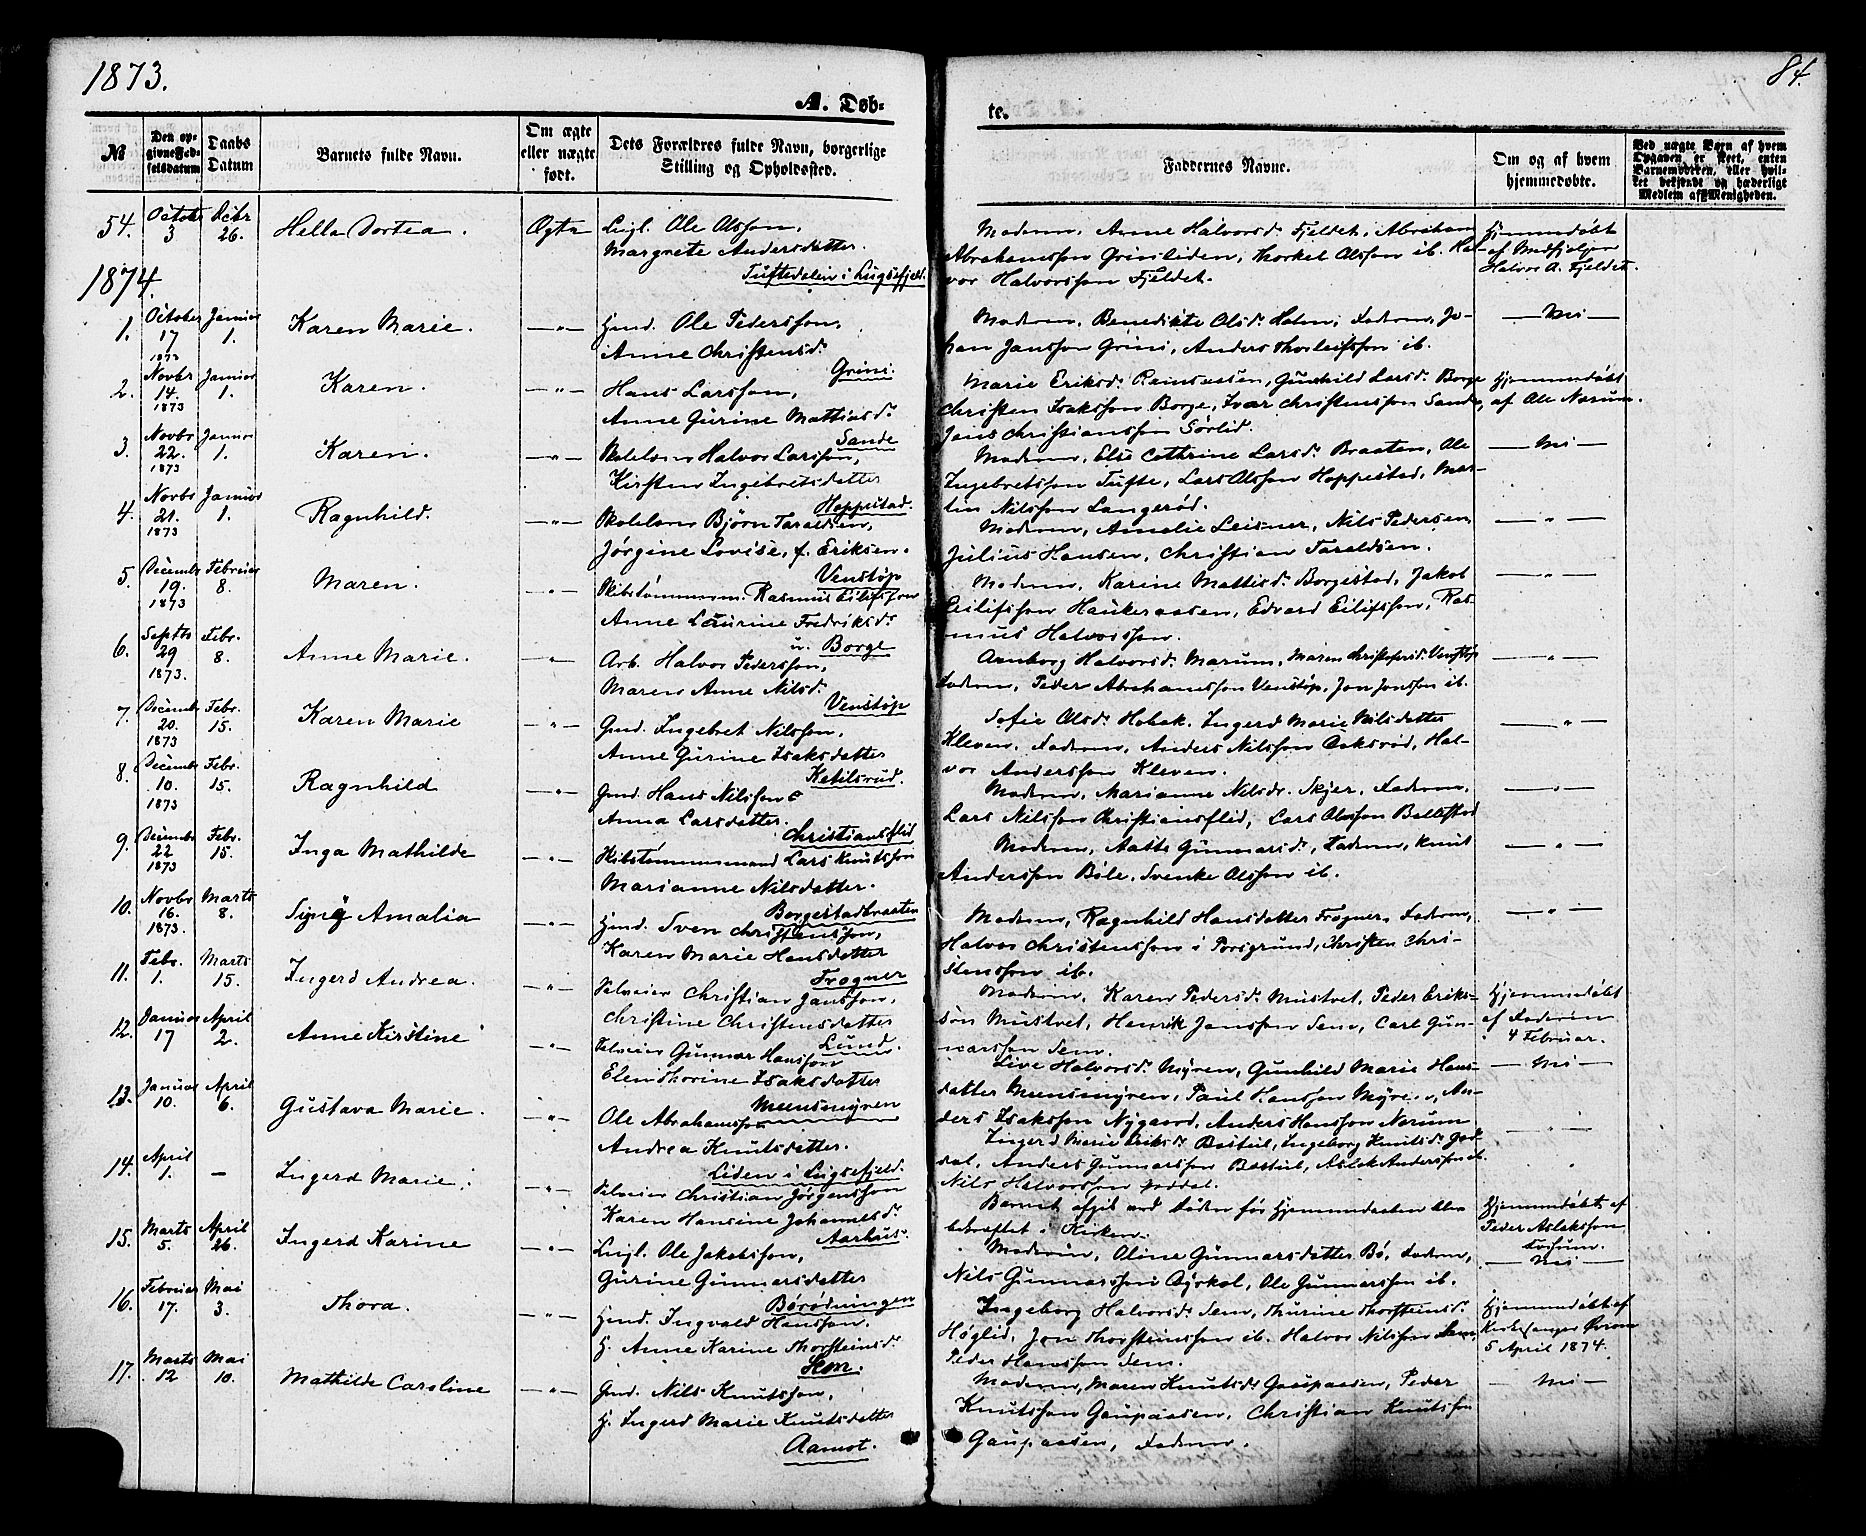 1873.
84.
A. Døb-
te.
№
Den op-
givne Fød-
selsdatum
Daabs
Datum
Barnets fulde Navn.
Om ægte
eller uægte
født.
Dets Forældres fulde Navn, borgerlige
Stilling og Opholdssted.
Faddernes Navne.
Om og af hvem
hjemmedøbte.
Ved uægte Børn af hvem
Opgaven er skeet, enten
Barnemoderen, eller hvil-
ket bekjendt og hæderligt
Medlem af Menigheden.
54. October 3 Dcbr 26. Hella Dortea. Ægte Leigl. Ole Olsson,
Margrete Andersdatter.
Tuftedalen i Lugsefjeld.
Moderen, Anne Halvorsd. Fjeldet, Abraham
Abrahamsson Griniliden, Thorkel Olsson ib. Hal-
vor Halvorsson Fjeldet.
Hjemmedøbt
Halvor A. Fjeldet.
1874.
1. October 17 1873 Januar 1. Karen Marie. —"— Gmd. Ole Pedersson,
Anne Christensd.
Grini.
Moderen, Benedikte Olsd. Holm, Faderen, Jo-
han Jansson Grini, Anders Thorleifsson ib.
— Nei —
2. Novbr 14. 1873 Januar 1. Karen. —"— Hans Larsson,
Anne Gurine Mathiasd.
Sande
Marie Eriksd. Ramsaasen, Gunhild Larsd. Borge
Christen Isaksson Borge, Ivar Christensson Sande,
Jens Christiansson Sørlid.
Hjemmedøbt
af Ole Narum.
3. Novbr 22. 1873 Januar 1. Karen. —"— Skolelærer Halvor Larsson,
Kirsten Ingebretsdatter
Hoppestad.
Moderen, Else Cathrine Larsd. Braaten, Ole
Ingebretsson Tufte, Lars Olsson Hoppestad, Mar-
tin Nilsson Langerød.
— Nei —
4. Novbr 21. 1873 Januar 1. Ragnhild. —"— Skolelærer Björn Taraldsen,
Jørgine Lovise, f. Eriksen.
Venstøp
Moderen, Amalie Leisner, Nils Pedersen,
Julius Hansen, Christian Taraldsen.
— " —
5. Decembr 19. 1873 Februar 8. Maren. —"— Skibstømmerm. Rasmus Eilifsson
Anne Laurine Fredriksd.
u. Borge
Moderen, Karine Mattisd. Borgestad, Jakob
Eilifsson Haukeraasen, Edvard Eilifsson, Ras-
mus Halvorsson.
— " —
6. Septbr 29 1873. Febr. 8. Anne Marie. —"— Arb. Halvor Pedersson,
Maren Anne Nilsd.
Venstøp
Arnborg Halvorsd. Marum, Maren Christophersd. Venstøp
Faderen, Peder Abrahamsson Venstøp, Jon Jonsson ib.
— " —
7. Decembr 20. 1873 Febr. 15. Karen Marie —"— Gmd. Ingebret Nilsson,
Anne Gurine Isaksdatter
Ketilsrud.
Sofie Olsd. Hobæk, Ingerd Marie Nilsdatter
Kleven, Faderen, Anders Nilsson Aaksrød, Hal-
vor Andersson Kleven.
— " —
8. Decembr 10. 1873 Febr. 15. Ragnhild —"— Gmd. Hans Nilsson &
Anna Larsdatter.
Christianslid
Moderen, Marianne Nilsdr. Skjer, Faderen,
Lars Nilsson Christianslid, Lars Olsson Bollestad
— " —
9. Decembr 22 1873 Febr. 15. Inga Mathilde —"— Skibstømmermand Lars Knutsson
Marianne Nilsdatter.
Borgestadbraaten
Moderen, Aaste Gunnarsd., Faderen, Knut
Andersson Bøle, Svenke Olsson ib.
— " —
10. Novbr 16. 1873. Marts 8. Signy Amalia —"— Gmd. Sven Christensson,
Karen Marie Hansdatter
Frogner
Moderen, Ragnhild Hansdatter Frogner, Faderen,
Halvor Christensson i Porsgrund, Christen Chri-
stensson ib.
— " —
11. Febr. 1. Marts 15. Ingerd Andrea. —"— Selveier Christian Jansson,
Christine Christensdatter
Lund.
Moderen, Karen Pedersd. Mustvet, Peder Eriks-
søn Mustvet, Henrik Jansson Sem, Carl Gun-
narsson Sem.
Hjemmedøbt
af Faderen
4 Februar.
12. Januar 17 April 2. Anne Kirstine —"— Selveier Gunnar Hansson
Elen Thorine Isaksdatter
Meensmyren
Live Halvorsd. Myren, Gunhild Marie Hans-
datter Meensmyren, Paul Hansson Myren, An-
ders Isaksson Nygaard, Anders Hansson Narum
— Nei —
13. Januar 10. April 6. Gustava Marie. —"— Ole Abrahamsson
Andrea Knutsdatter.
Liden i Lugsefjeld.
Ingerd Marie Eriksd. Bøsteil, Ingeborg Knutsd. God-
dal, Anders Gunnarsson Bøsteil, Aslak Andersson ib.
Nils Halvorsson Goddal.
— " —
14. April 1. — Ingerd Marie. —"— Selveier Christian Jörgensson
Karen Hansine Johannesd.
Aarhus.
Barnet afgik ved Døden før Hjemmedaaben blev
bekræftet i Kirken.
Hjemmedøbt af
Peder Aslaksson
Fossum.
15. Marts 5. April 26. Ingerd Karine —"— Leigl. Ole Jakobsson,
Gurine Gunnarsdatter
Børødningen
Moderen, Oline Gunnarsdatter Bø, Faderen,
Nils Gunnarsson Ajskol, Ole Gunnarsson ib.
— Nei —
16. Februar 17. Mai 3. Thora. —"— Gmd. Ingvald Hansson,
H. Anne Karine Thorsteinsd.
Sem.
Ingeborg Halvorsd. Sem, Thurine Thorsteinsd.
Høglid, Jon Thorsteinsson ib. Halvor Nilsson Sem,
Peder Hansson Sem.
Hjemmedøbt af
Kirkesanger
5 April 1874.
17. Marts 12 Mai 10. Mathilde Caroline —"— Gmd. Nils Knutsson,
H. Ingerd Marie Knutsdatter
Aamot.
Moderen, Maren Knutsd. Gaupaasen, Peder
Knutsson Gaupaasen, Christian Knutsson
Gaupaasen, Faderen.
— Nei —